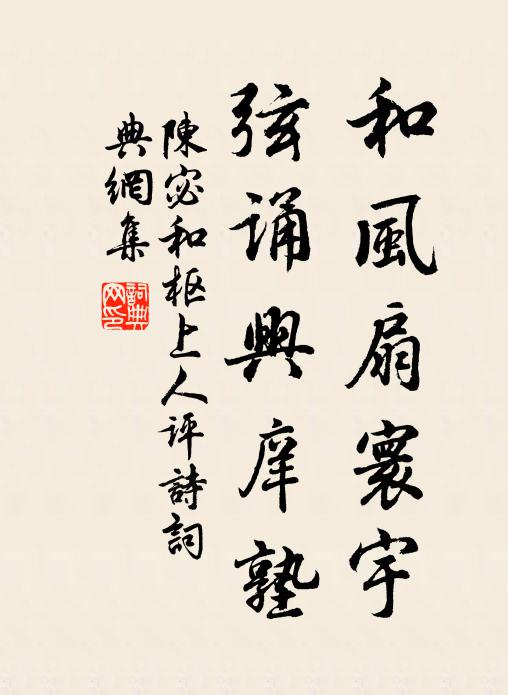 和風扇寰宇
弦誦興庠塾
陳宓和柩上人评詩詞
典網集
詞典
网印